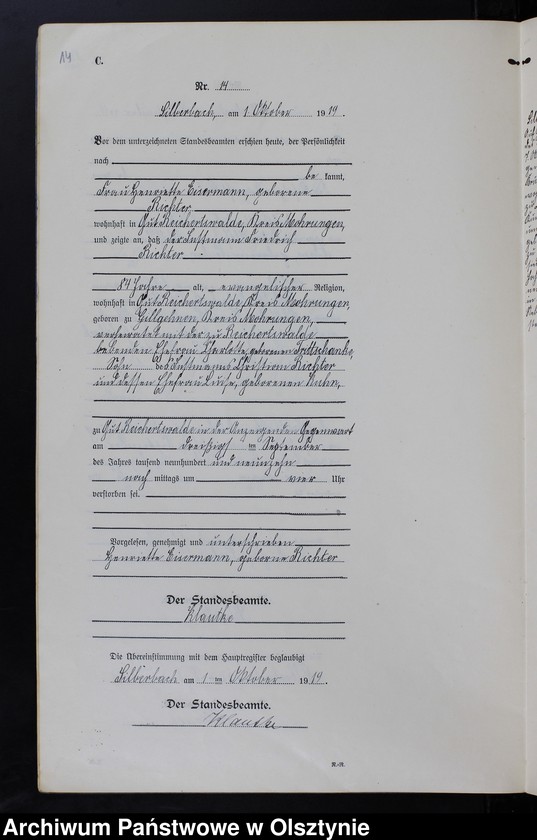 14
C.
Nr. 14
Silberbach, am 1 Oktober 1919.
Vor dem unterzeichneten Standesbeamten erschien heute, der Persönlichkeit
nach
be kannt,
Frau Henriette Eisermann, geborene
Richter
wohnhaft in Gut Reichertswalde, Kreis Mohrungen,
und zeigte an, daß der Instmann Friedrich
Richter
84 Jahre alt, evangelischer Religion,
wohnhaft in Gut Reichertswalde, Kreis Mohrungen,
geboren zu Güllgehnen, Kreis Mohrungen,
verheiratet mit der zu Reichertswalde
lebenden Ehefrau Charlotte, geborenen
Sohn des Instmanns Christian Richter
und dessen Ehefrau Luise, geborenen Kuhn,
zu Gut Reichertswalde in der Anzeigenden Gegenwart
am dreißigsten September
des Jahres tausend neunhundert und neunzehn
nach mittags um vier Uhr
verstorben sei.
Vorgelesen, genehmigt und unterschrieben
Henriette Eisermann, geborne Richter
Der Standesbeamte.
Klautke
Die Übereinstimmung mit dem Hauptregister beglaubigt
Silberbach am 1 ten Oktober 1919.
Der Standesbeamte.
Klautke
Archiwum Państwowe w Olsztynie